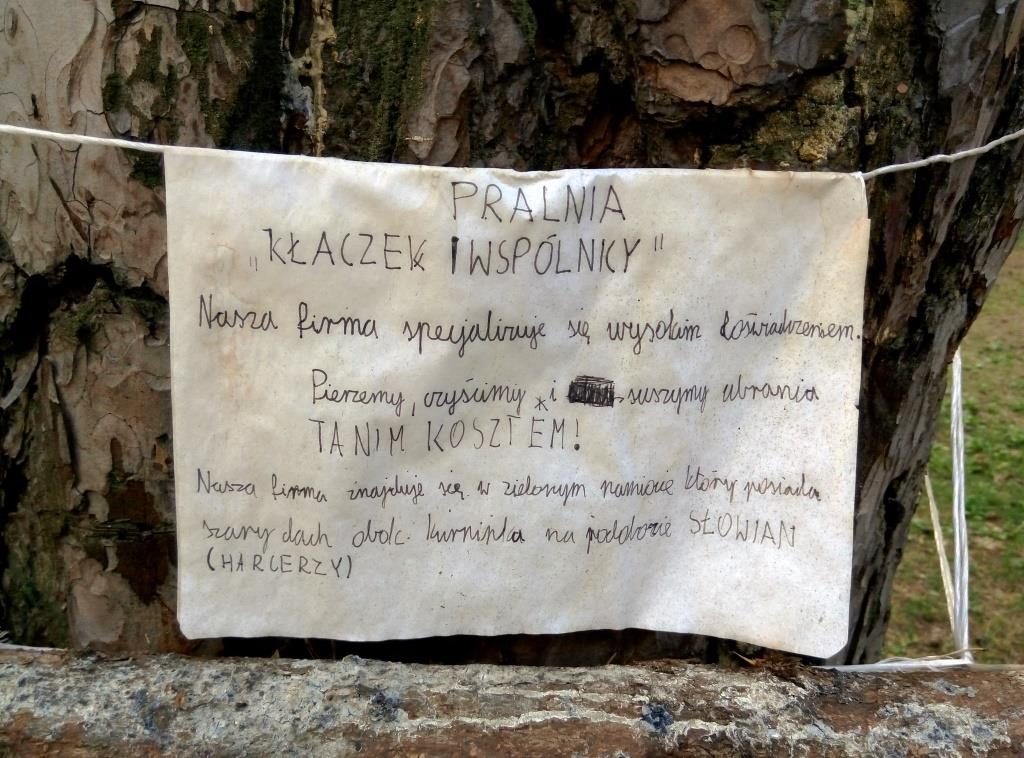 PRALNIA
„KŁACZEK I WSPÓLNICY"
Nasza firma specjalizuje się wysokim doświadczeniem.
Pierzemy, czyścimy i suszymy ubrania
TANIM KOSZTEM!
Nasza firma znajduje się w zielonym namiocie który posiada
szary dach obok kurnika na podobozie SŁOWIAN
(HARCERZY)